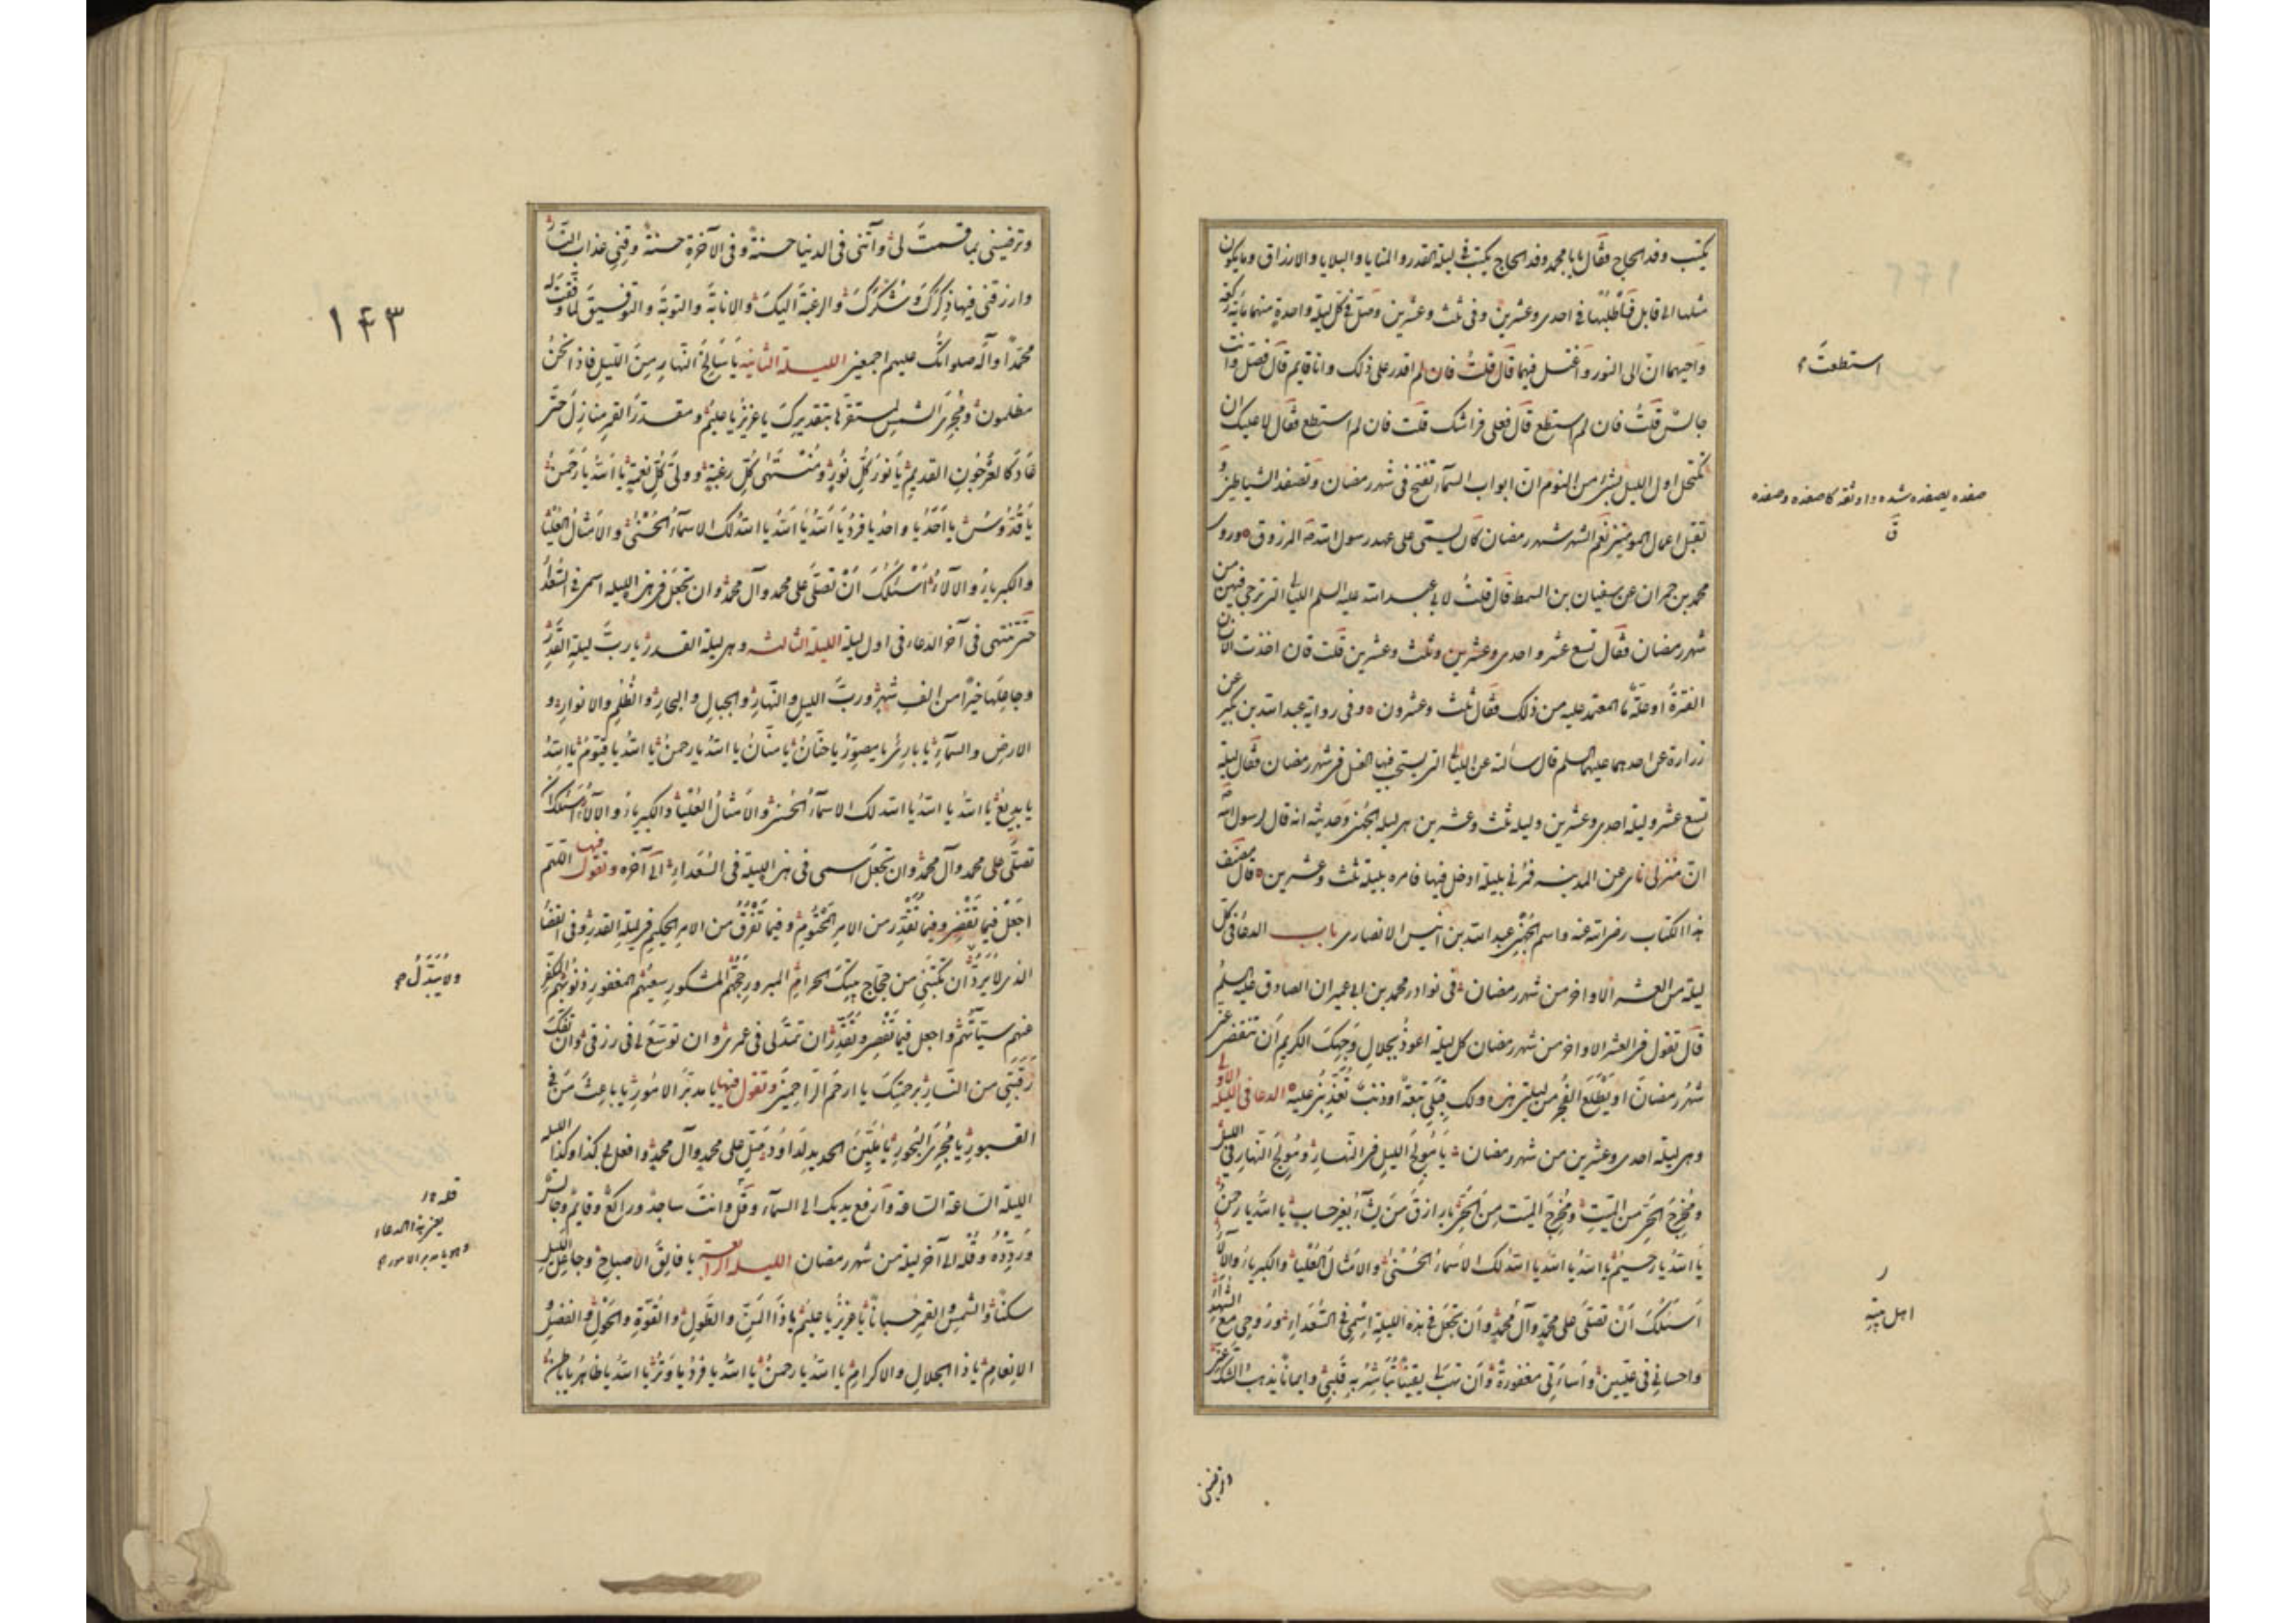 يكتب وفد الحاج فقال يا با محمد وفد الحاج يكتب فى ليلة القدر والمنايا والبلايا والارزاق وما يكون
مثلها الى قابل فاطلبها فى احدى وعشرين وفى ثلث وعشرين وصل فى كل ليلة واحدة منهما مائة ركعة
واحيهما ان الى النور واغتسل فيهما قال قلت فان لم اقدر على ذلك وانا قايم قال فصل وانت
استطعت
جالس قلت فان لم استطع قال فعلى فراشك قلت فان لم استطع فقال لا عليك ان
تكتحل اول الليل بشئ من النوم ان ابواب السمآء تفتح فى شهر رمضان وتصفد الشياطين و
صفده يصفده شده واوثقه كاصفده وصفده
ق
تقبل اعمال المومنين نعم الشهر شهر رمضان كان يسمى على عهد رسول الله ص المرزوق وروى
محمد بن حمران عن سفيان بن السمط قال قلت لابى عبد الله عليه السلم الليالى التى ترجى فيهن من
شهر رمضان فقال تسع عشر واحدى وعشرين وثلث وعشرين قلت فان اخذت الانسان
الفترة او علة ما المعتمد عليه من ذلك فقال ثلث وعشرون وفى رواية عبد الله بن بكير عن
زرارة عن احدهما عليهما السلم قال سألته عن الليالى التى يستحب فيها الغسل فى شهر رمضان فقال ليلة
تسع عشر وليلة احدى وعشرين وليلة ثلث وعشرين هى ليلة الجهنى وحديثه انه قال لرسول الله
ان منزلى ناى عن المدينة فمرنى بليلة ادخل فيها فامره بليلة ثلث وعشرين قال مصنف
هذا الكتاب رضى الله عنه واسم الجهنى عبد الله بن انيس الانصارى باب الدعآء فى كل
ليلة من العشر الاواخر من شهر رمضان فى نوادر محمد بن ابى عمير ان الصادق عليه السلم
قال تقول فى العشر الاواخر من شهر رمضان كل ليلة اعوذ بجلال وجهك الكريم ان ينقضى عنى
شهر رمضان او يطلع الفجر من ليلتى هذه ولك قبلى تبعة او ذنب تعذبنى عليه الدعا فى الليلة الاولى
وهى ليلة احدى وعشرين من شهر رمضان يا مولج الليل فى النهار ومولج النهار فى الليل
ومخرج الحى من الميت ومخرج الميت من الحى يا رازق من يشآء بغير حساب يا الله يا رحمن
يا الله يا رحيم يا الله يا الله يا الله لك الاسمآء الحسنى والامثال العليا والكبريآء والآلآء
اسئلك ان تصلى على محمد وآل محمد وان تجعل فى هذه الليلة اسمى فى السعدآء وروحى مع الشهدآء
ر
اهل بيته
واحسانى فى عليين واسآءتى مغفورة وان تهب لى يقينا تباشر به قلبى وايمانا يذهب الشك عنى
وترضينى
١٤٣
وترضينى بما قسمت لى وآتنى فى الدنيا حسنة وفى الآخرة حسنة وقنى عذاب النار
وارزقنى فيها ذكرك وشكرك والرغبة اليك والانابة والتوبة والتوفيق لما وفقت له
محمدا وآله صلواتك عليهم اجمعين الليلة الثانية يا سالخ النهار من الليل فاذا نحن
مظلمون ومجرى الشمس لمستقرها بتقديرك يا عزيز يا عليم ومقدر القمر منازل حتى
عاد كالعرجون القديم يا نور كل نور ومنتهى كل رغبة وولى كل نعمة يا الله يا رحمن
يا قدوس يا احد يا واحد يا فرد يا الله يا الله يا الله لك الاسمآء الحسنى والامثال العليا
والكبريآء والآلآء اسئلك ان تصلى على محمد وآل محمد وان تجعل فى هذه الليلة اسمى فى السعدآء
حتى تنتهى فى آخر الدعاء فى اول ليلة الليلة الثالثة وهى ليلة القدر يا رب ليلة القدر
وجاعلها خيرا من الف شهر ورب الليل والنهار والجبال والبحار والظلم والانوار و
الارض والسمآء يا بارئ يا مصور يا حنان يا منان يا الله يا رحمن يا الله يا قيوم يا الله
يا بديع يا الله يا الله يا الله لك الاسمآء الحسنى والامثال العليا والكبريآء والآلآء اسئلك ان
تصلى على محمد وآل محمد وان تجعل اسمى فى هذه الليلة فى السعدآء الى آخره وتقول فيها اللهم
اجعل فيما تقضى وفيما تقدر من الامر المحتوم وفيما تفرق من الامر الحكيم فى ليلة القدر وفى القضآء
الذى لا يرد ان تكتبنى من حجاج بيتك الحرام المبرور حجهم المشكور سعيهم المغفور ذنوبهم المكفر
ولا يبدل
عنهم سيآتهم واجعل فيما تقضى وتقدر ان تمد لى فى عمرى وان توسع لى فى رزقى وان تفك
رقبتى من النار برحمتك يا ارحم الراحمين وتقول فيها يا مدبر الامور يا باعث من فى
القبور يا مجرى البحور يا ملين الحديد لداود صل على محمد وآل محمد وافعل لى كذا وكذا الليلة
الليلة الساعة الساعة وارفع يديك الى السمآء وقل وانت ساجد وراكع وقايم وجالس
يعنى هذا الدعاء
وهو يا مدبر الامور
وردده وقله الى آخر ليلة من شهر رمضان الليلة الرابعة يا فالق الاصباح وجاعل الليل
سكنا والشمس والقمر حسبانا يا عزيز يا عليم يا ذا المن والطول والقوة والحول والفضل و
الانعام يا ذا الجلال والاكرام يا الله يا رحمن يا الله يا فرد يا وتر يا الله يا ظاهر يا باطن